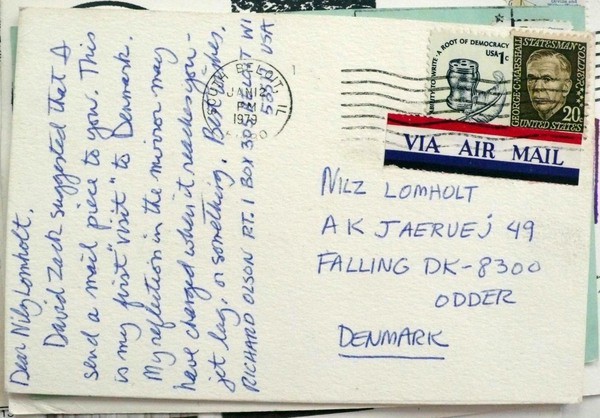 Dear Nilz Lomholt.
David Zack suggested that I
send a mail piece to you. This
is my first "visit" to Denmark.
My reflection in the mirror may
have changed when it reaches you -
jet lag, or something. Best wishes,
RICHARD OLSON RT. 1 BOX BELOIT WI
USA
SOUTH BELOIT, IL
JAN 12
PM
1979
A ROOT OF DEMOCRACY
USA 1c
GEORGE C. MARSHALL
STATESMAN
SOLDIER
20c
UNITED STATES
VIA AIR MAIL
NILZ LOMHOLT
AKJAERVEJ 49
FALLING DK-8300
ODDER
DENMARK